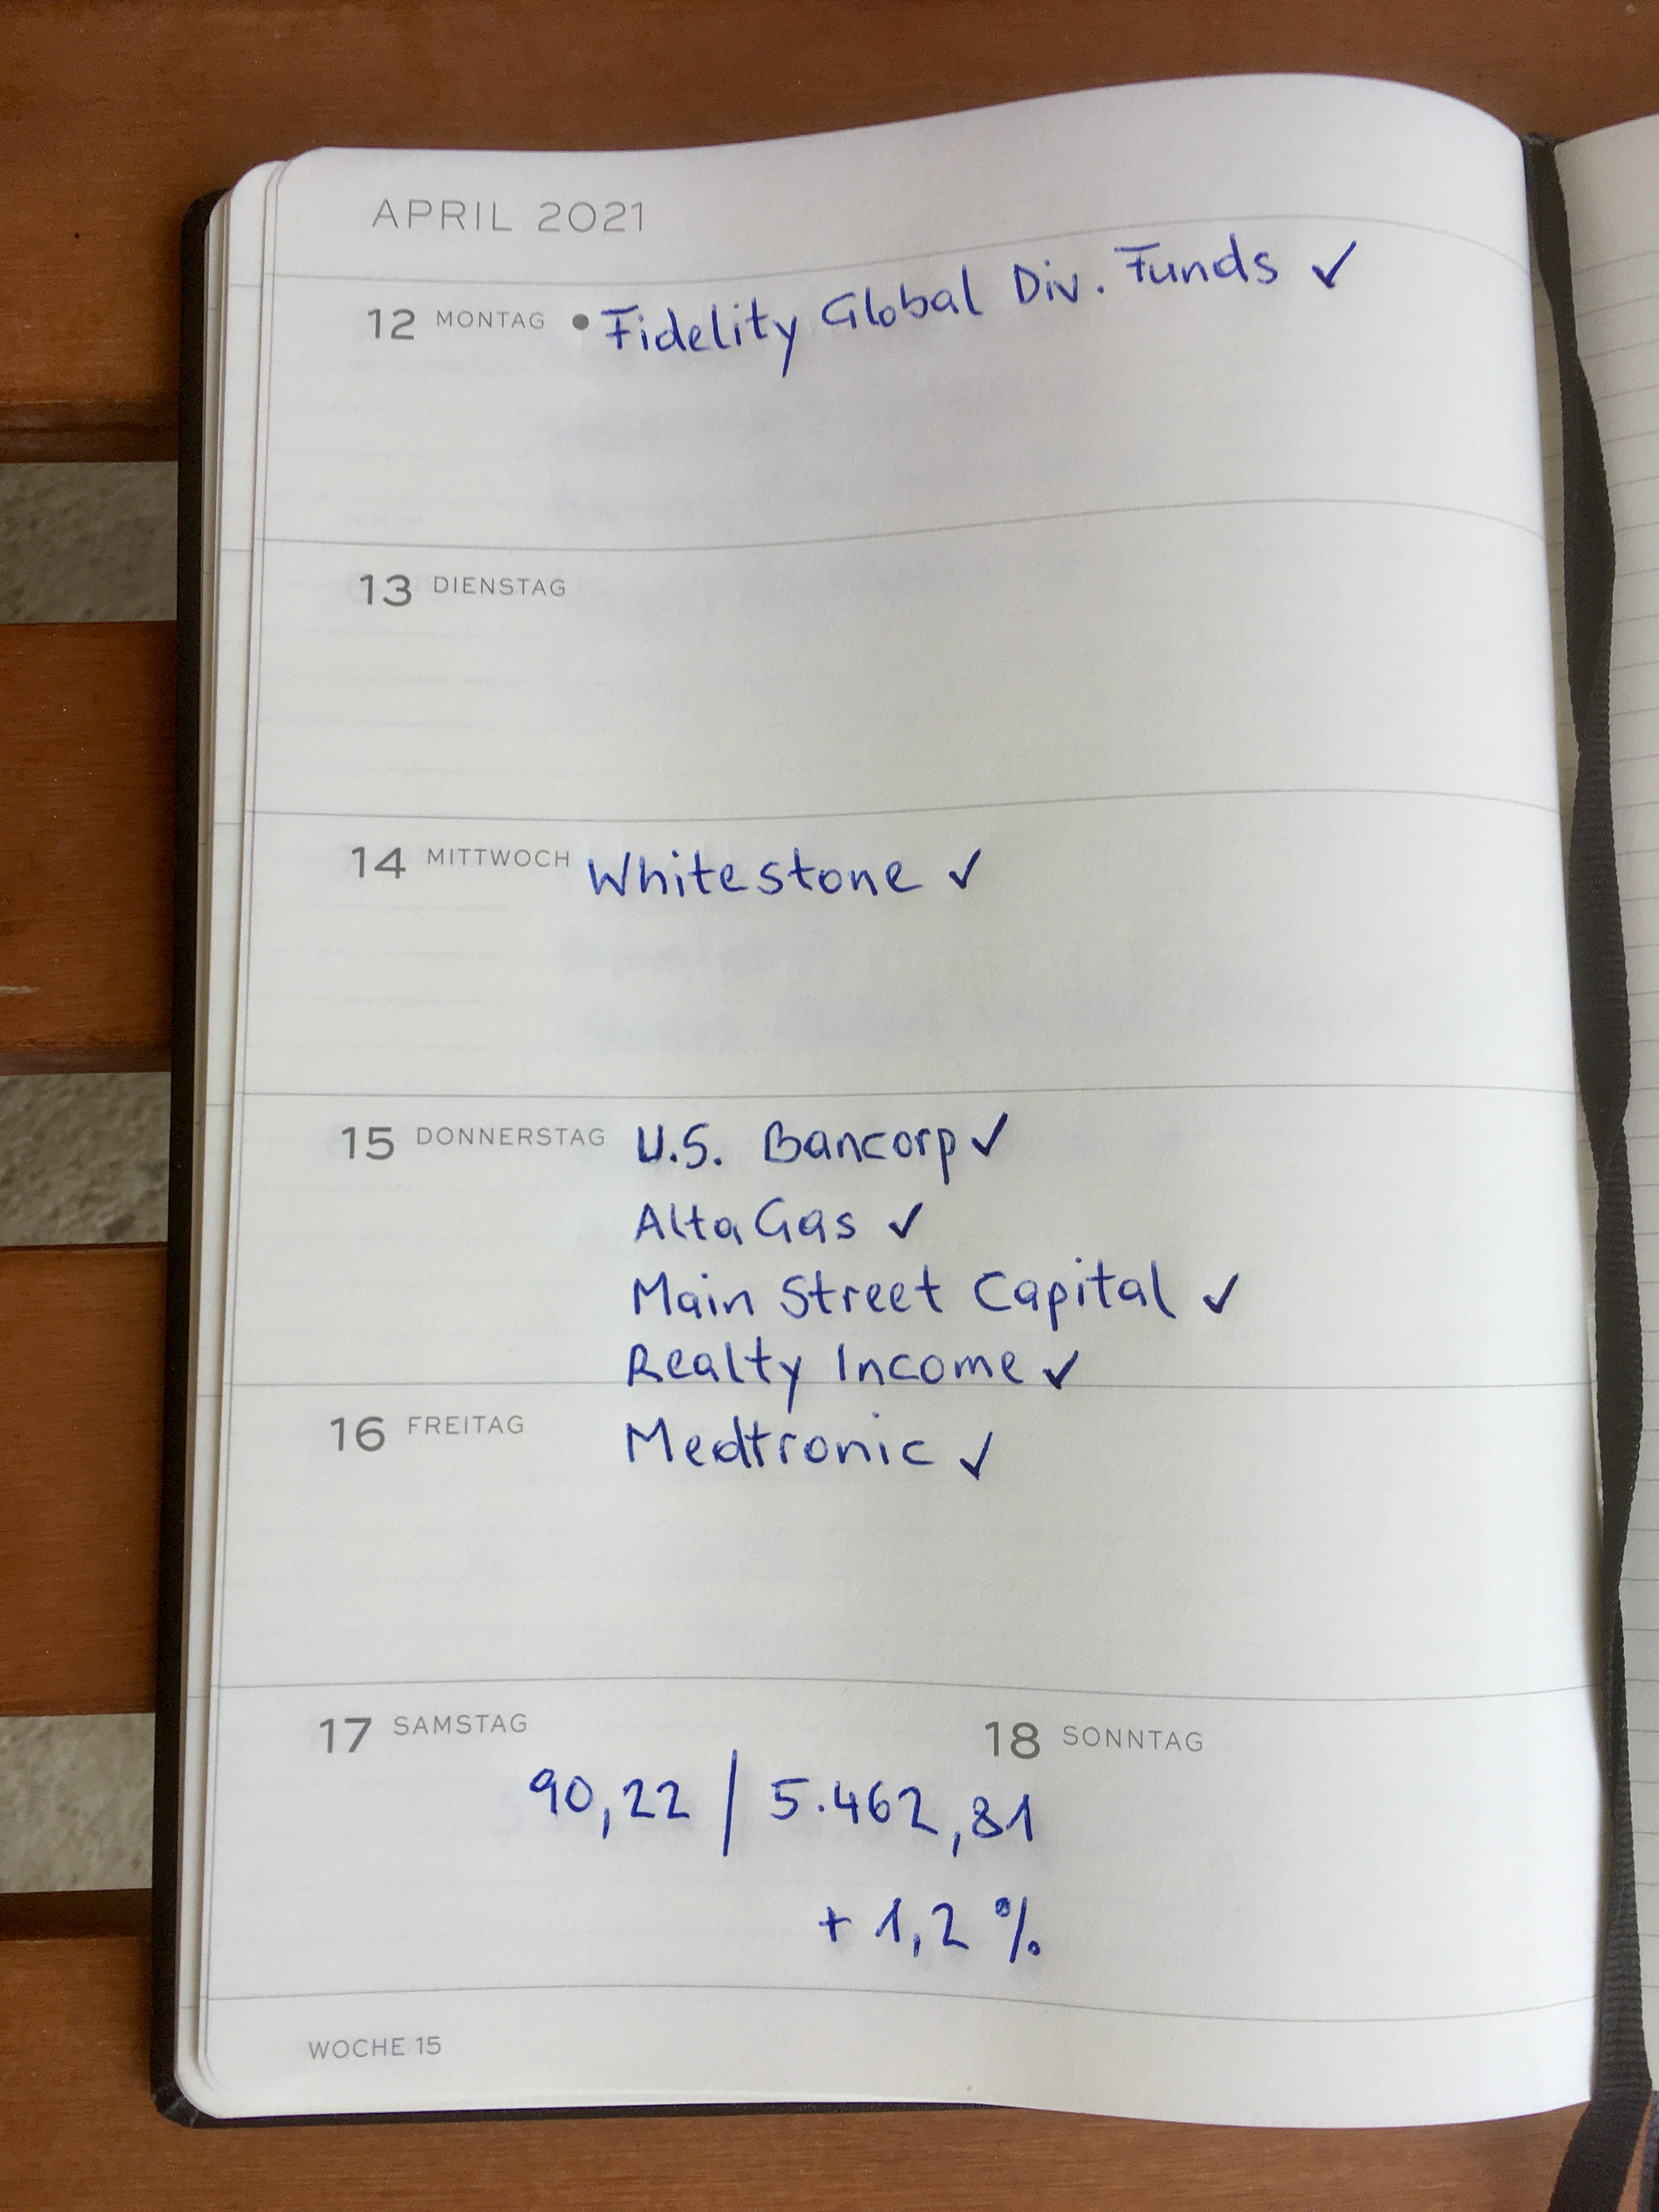 APRIL 2021
12 MONTAG • Fidelity Global Div. Funds ✓
13 DIENSTAG
14 MITTWOCH Whitestone ✓
15 DONNERSTAG U.S. Bancorp ✓
AltaGas ✓
Main Street Capital ✓
Realty Income ✓
16 FREITAG Medtronic ✓
17 SAMSTAG 18 SONNTAG
90,22 / 5.462,81
+ 1,2 %
WOCHE 15